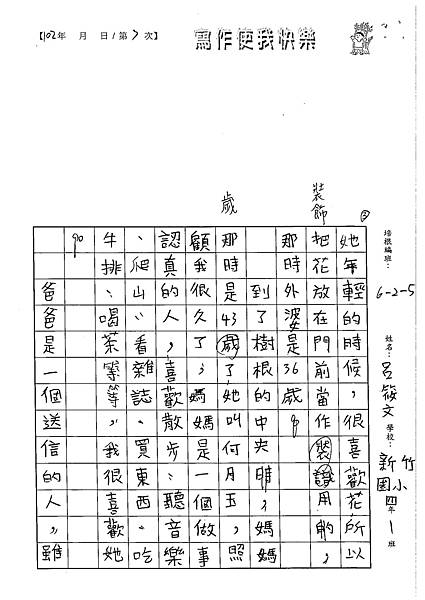 【102年 月 日/第7次】
寫作使我快樂
培根編班：6-2-5
姓名：呂筱文
學校：新竹國小四年1班
②
裝飾
歲
她年輕的時候，很喜歡花所以
把花放在門前當作裝識用的，
那時外婆是36歲。
到了樹根的中央時，媽媽
那時是43歲了她叫何月玉，照
顧我很久了；媽媽是一個做事
認真的人，喜歡散步、聽音樂
、爬山、看雜誌、買東西、吃
牛排、喝茶等等。我很喜歡她
90
爸爸是一個送信的人，雖